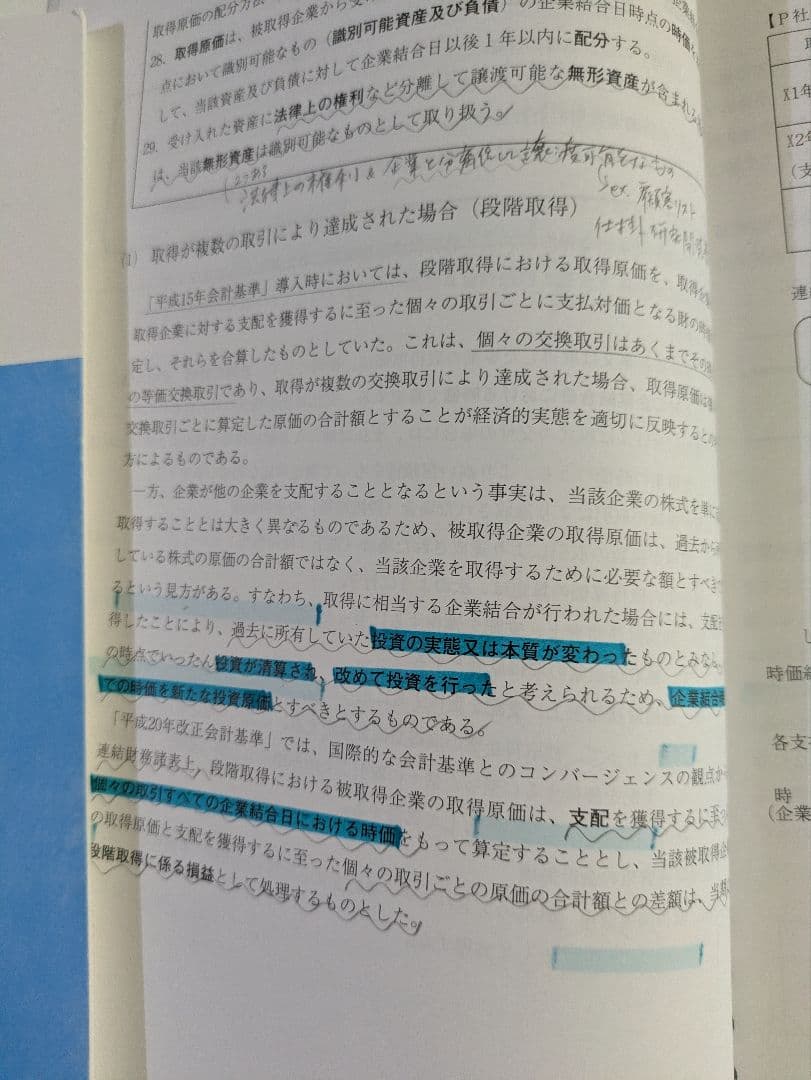 取得原価の配分方法
28. 取得原価は、被取得企業から受
点において識別可能なもの（識別可能資産及び負債）の企業結合日時点の時価
して、当該資産及び負債に対して企業結合日以後1年以内に配分する。
29. 受け入れた資産に法律上の権利など分離して譲渡可能な無形資産が含まれる
は、当該無形資産は識別可能なものとして取り扱う。
法律上の権利 & 企業と分離して譲渡可能なもの
ex. 顧客リスト
仕掛研究開発
(1) 取得が複数の取引により達成された場合（段階取得）
「平成15年会計基準」導入時においては、段階取得における取得原価を、取得
取得企業に対する支配を獲得するに至った個々の取引ごとに支払対価となる財の時価
定し、それらを合算したものとしていた。これは、個々の交換取引はあくまでその
の等価交換取引であり、取得が複数の交換取引により達成された場合、取得原価は
交換取引ごとに算定した原価の合計額とすることが経済的実態を適切に反映するとの
方によるものである。
一方、企業が他の企業を支配することとなるという事実は、当該企業の株式を単に
取得することとは大きく異なるものであるため、被取得企業の取得原価は、過去から
している株式の原価の合計額ではなく、当該企業を取得するために必要な額とすべき
るという見方がある。すなわち、取得に相当する企業結合が行われた場合には、支配
得したことにより、過去に所有していた投資の実態又は本質が変わったものとみな
の時点でいったん投資が清算され、改めて投資を行ったと考えられるため、企業結合
での時価を新たな投資原価とすべきとするものである。
「平成20年改正会計基準」では、国際的な会計基準とのコンバージェンスの観点か
連結財務諸表上、段階取得における被取得企業の取得原価は、支配を獲得するに至
個々の取引すべての企業結合日における時価をもって算定することとし、当該被取得
の取得原価と支配を獲得するに至った個々の取引ごとの原価の合計額との差額は、当
段階取得に係る損益として処理するものとした。
【P社
X1年
X2年
(支
連
時価
各支
時
(企業